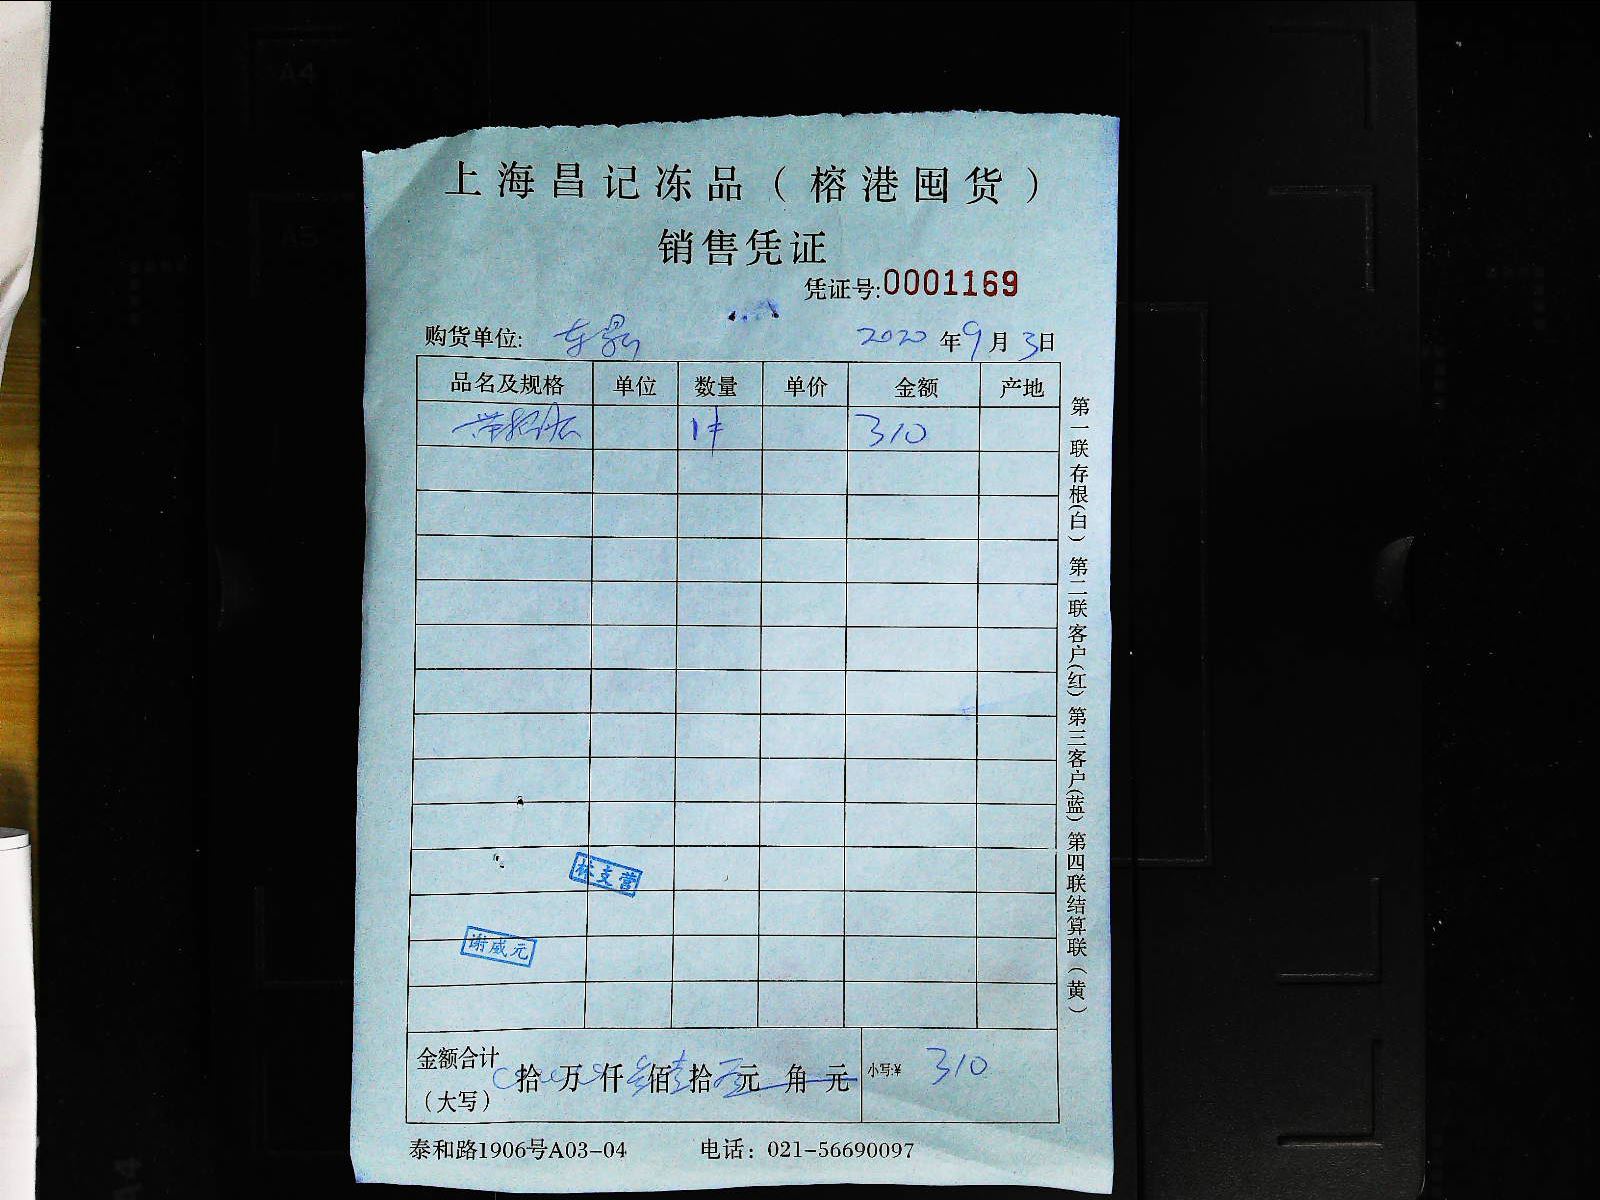 上海昌记冻品（榕港囤货）
销售凭证
凭证号:0001169
购货单位: 2020年9月3日
品名及规格 单位 数量 单价 金额 产地
1件 310
第一联存根(白) 第二联客户(红) 第三客户(蓝) 第四联结算联(黄)
林支营
谢威元
金额合计
（大写） 拾 万 仟 叁佰 壹拾 元 角 元 小写:¥ 310
泰和路1906号A03-04 电话：021-56690097
A4
A5